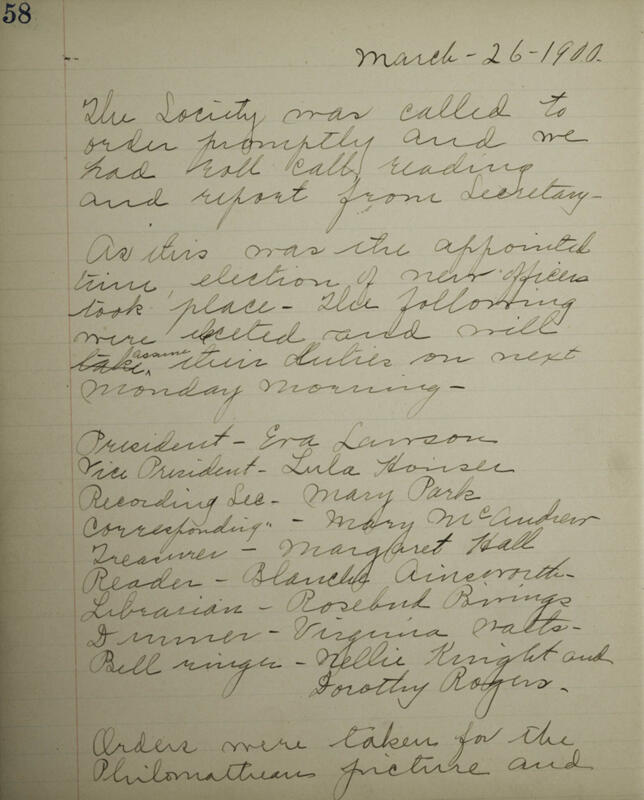 58
March-26-1900.
The Society was called to
order promptly and we
had roll call, reading
and report from Secretary-
As this was the appointed
time, election of new officers
took place - The following
were elected and will
take assume their duties on next
Monday morning -
President - Eva Lawson
Vice President - Lula Honser
Recording Sec - Mary Park
Corresponding " - Mary McAndrew
Treasurer - Margaret Hall
Reader - Blanche Ainsworth-
Librarian - Rosebud Bivings
Drummer - Virginia Watts-
Bell ringer - Nellie Knight and
Dorothy Rogers.
Orders were taken for the
Philomathean picture and